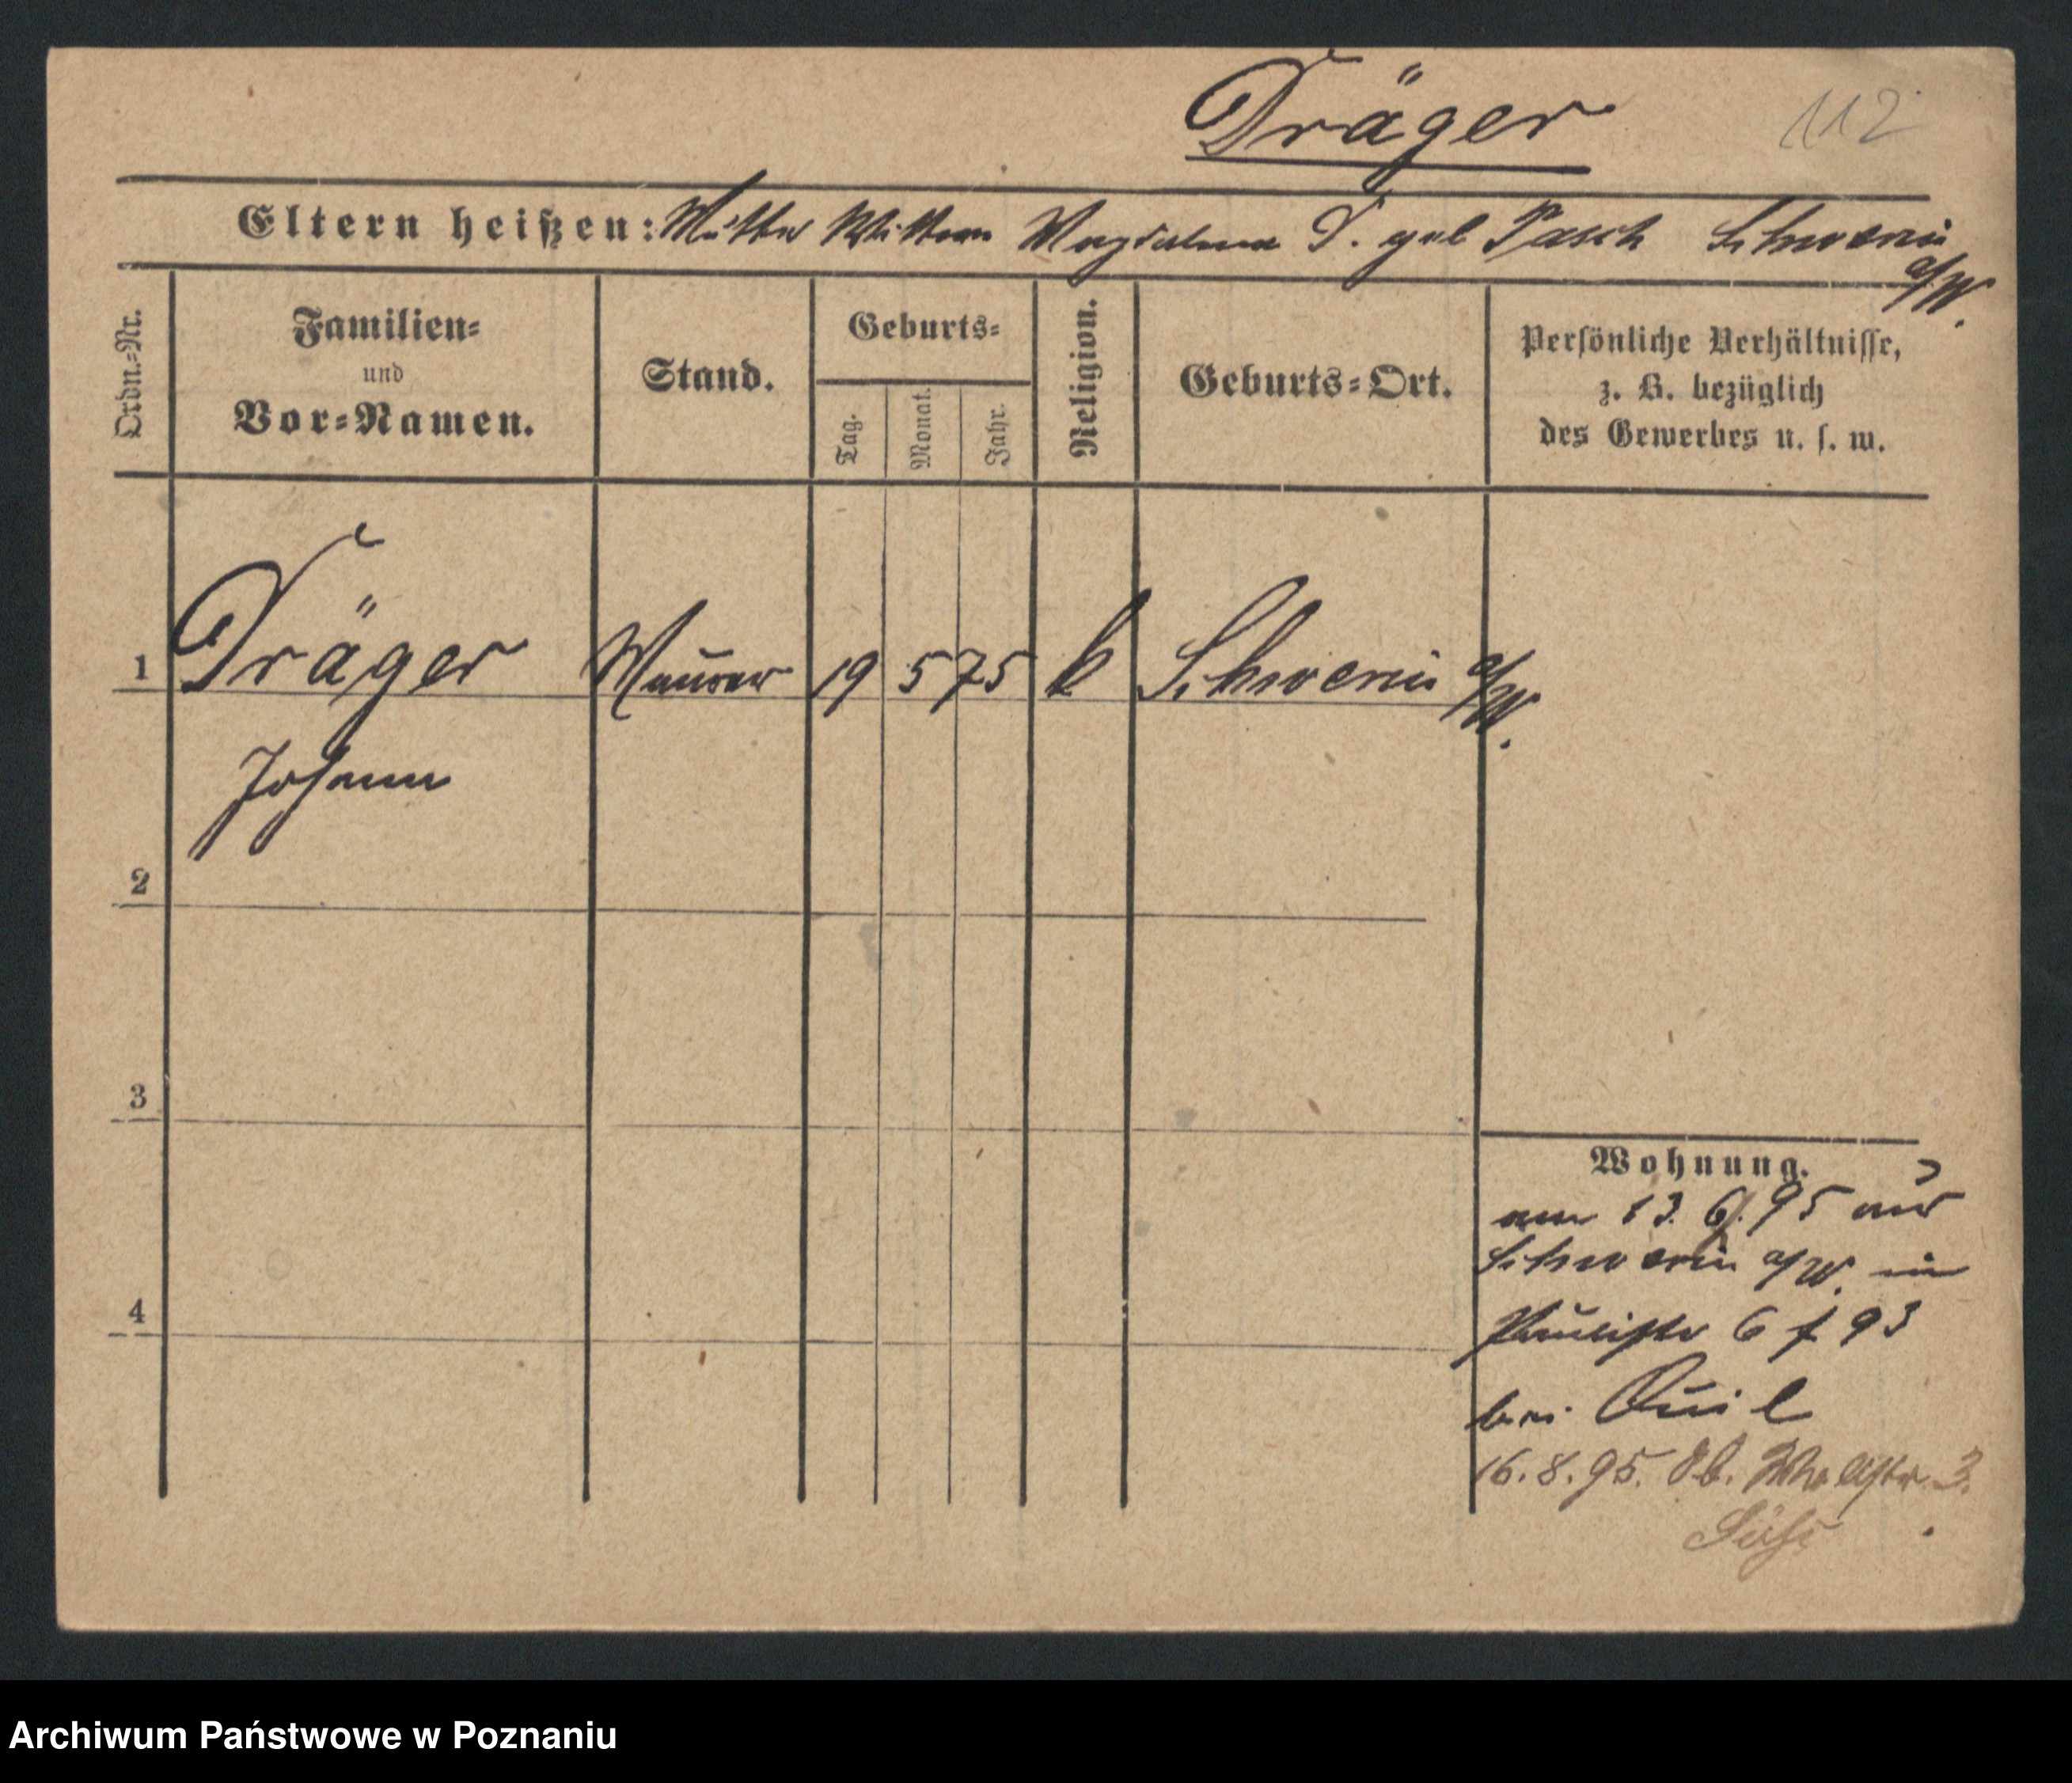 Dräger 112
Eltern heißen: Mutter Wittwe Magdalena D. geb Pasch Schwerin
a/W.
Ordn.-Nr.
Familien-
und
Vor-Namen.
Stand.
Geburts-
Tag.
Monat.
Jahr.
Religion.
Geburts-Ort.
Persönliche Verhältnisse,
z. B. bezüglich
des Gewerbes u. s. w.
1 Dräger Maurer 19 5 75 k Schwerin a/W.
Johann
2
3
4
Wohnung.
am 13. 6. 95 aus
Schwerin a/W. in
Paulistr 6 f 93
bei Quil
16. 8. 95. Ob. 3.
Archiwum Państwowe w Poznaniu